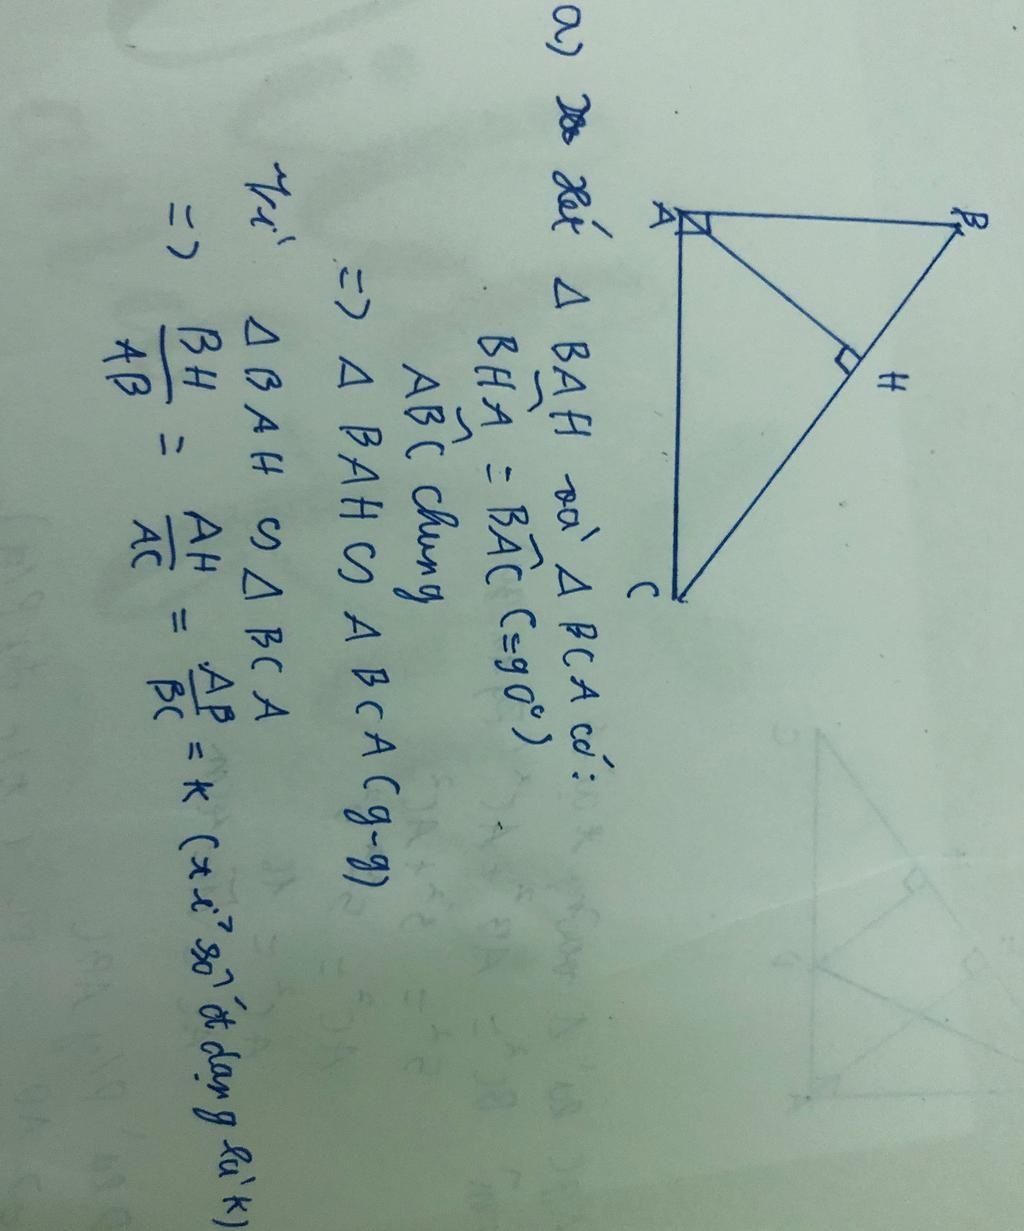 B
A
H
C
a) Xét Δ BAH và Δ BCA có:
BHA = BAC (=90°)
ABC chung
=> Δ BAH ∽ Δ BCA (g-g)
Vì Δ BAH ∽ Δ BCA
=> BH/AB = AH/AC = AB/BC = K (tỉ số đ dạng là K)